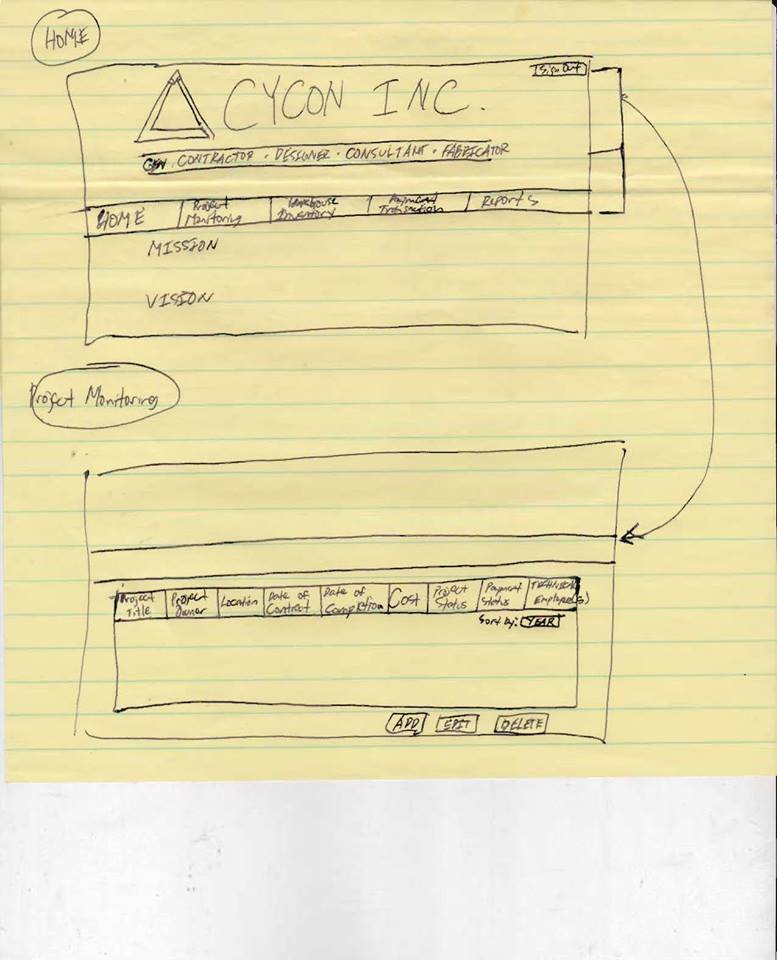 HOME
Sign Out
CYCON INC.
GEN. CONTRACTOR · DESIGNER · CONSULTANT · FABRICATOR
HOME
Project
Monitoring
Warehouse
Inventory
Payment
Transaction
Reports
MISSION
VISION
Project Monitoring
Project
Title
Project
Owner
Location
Date of
Contract
Date of
Completion
Cost
Project
Status
Payment
Status
TECHNICAL
Employee(s)
Sort by: YEAR
ADD
EDIT
DELETE